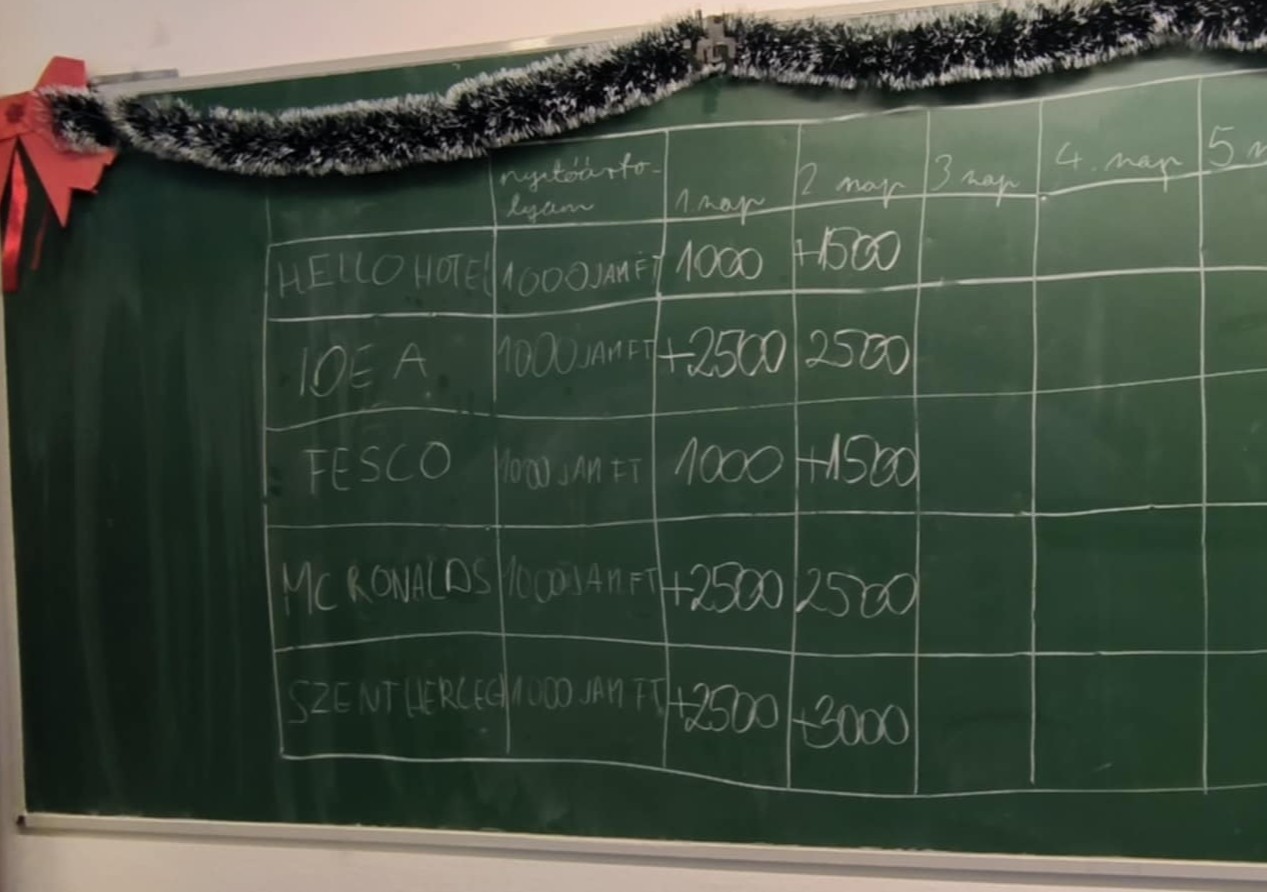 nyitóárfo-
lyam 1. nap 2 nap 3 nap 4. nap 5
HELLO HOTEL 1000 JAM FT 1000 +1500
IDEA 1000 JAM FT +2500 2500
FESCO 1000 JAM FT 1000 +1500
MC RONALDS 1000 JAM FT +2500 2500
SZENT HERCEG 1000 JAM FT +2500 +3000